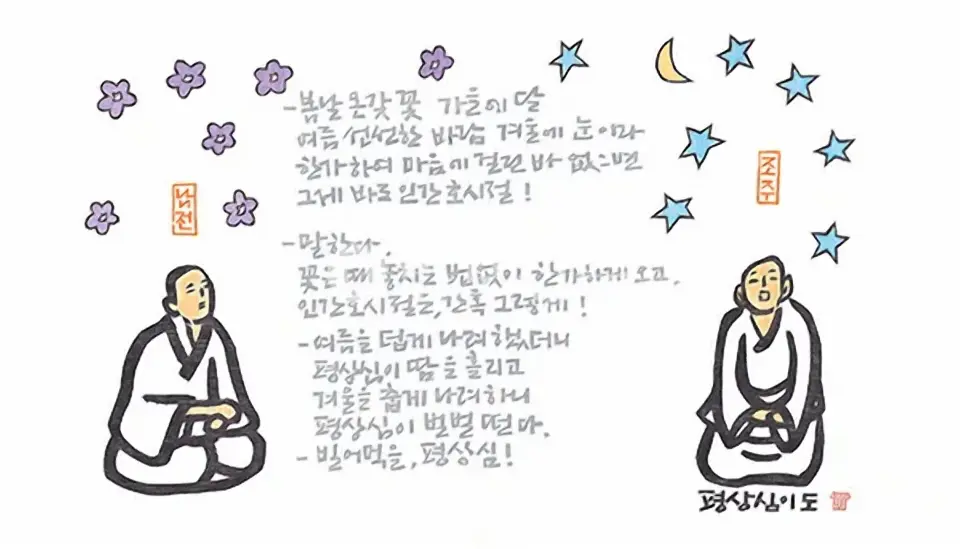 - 봄날 온갖 꽃 가을에 달
여름 선선한 바람 겨울에 눈이라
한가하여 마음에 걸린 바 없으면
그게 바로 인간 호시절!
- 말한다.
꽃은 때 놓치는 법 없이 한가하게 오고,
인간 호시절은, 간혹 그렇게!
- 여름을 덥게 나려 했더니
평상심이 땀을 흘리고
겨울을 춥게 나려하니
평상심이 벌벌 떤다.
- 빌어먹을, 평상심!
남전
조주
평상심이 도